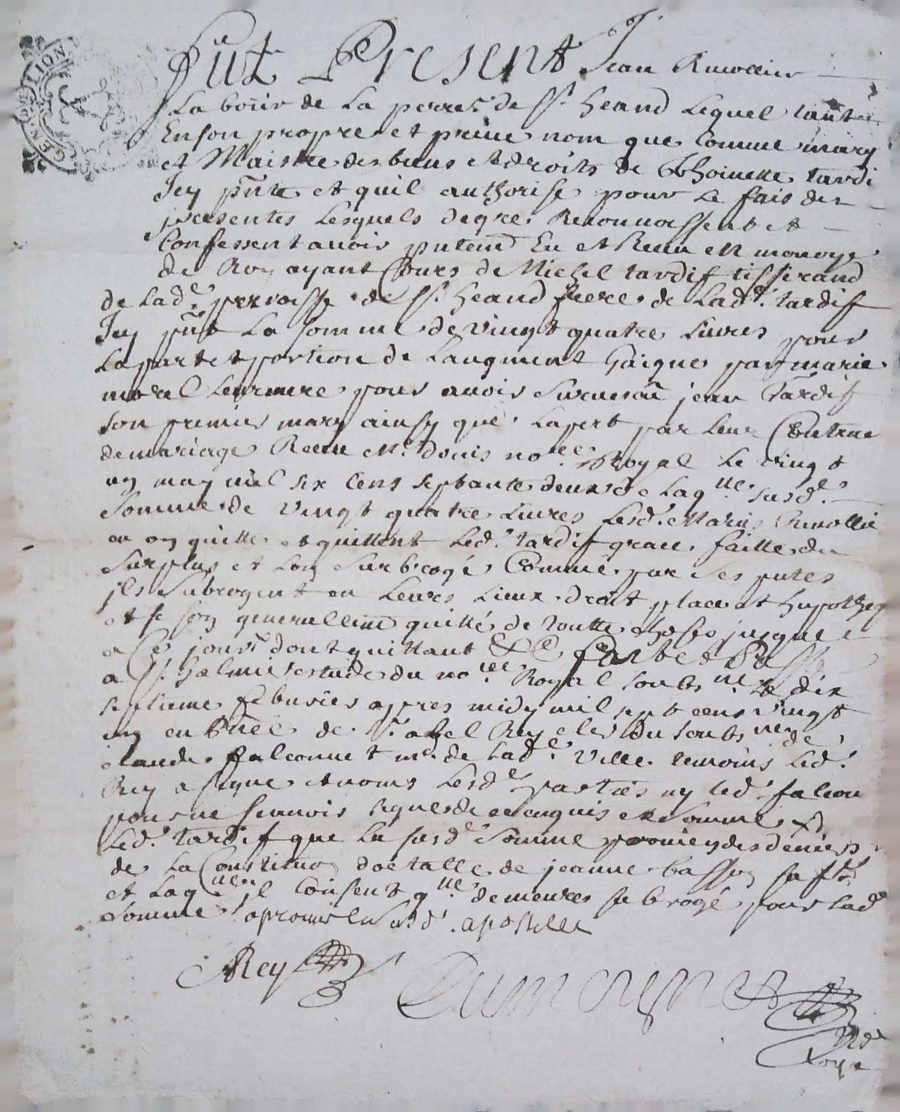 GENERALITION
fut Present Jean Rivollier
Laboureur de La perre.e de St. heand Lequel tant
En son propre et prive nom que Comme mary
et Maistre des biens et droits de Thoinette tardi
Icy pnte et quil authorise pour Le fait des
presentes Lesquels de gre Reconnoissent et
Confessent avoir Eu et Receu en monoye
de Roy ayant Cours de Michel tardif tisserand
de Lad.e perroisse de St. heand frere de Lad.e tardif
Icy pnt La somme de vingt quatre Livres pour
La part et portion de Laugment Gaigne par marie
pour avoir Survescu jean Tardif
son premier mary ainsy que Lapert par Leur Contrac
de mariage Receu Me. no.re Royal Le vingt
un may mil six Cens septante deux de Laq.lle susd.e
Somme de vingt quatre Livres Lesd. Maries Rivollie
en on quitte et quittent Led. tardif grace faitte du
surplus et Lon Surbroge Comme par Ses pntes
jls subrogent en Leurs Lieux droit place et hypotheq
et se son generallemt quitté de toutte Choses jusques
a Ce jour dont quittant &.a fait et Passé
a St. Galmier estude du no.re Royal soubs.ne Le dix
septieme febvrier apres midy mil sept cens vingt
un en Pnce de Sr. abel Rey clerc du soubs.ne et de
claude falconnet md. de Lad.e ville temoins Led.
Rey a signe et nons Lesd.e parties ny led. falcon
pour ne scavoir signe de ce enquis et somme
Led. tardif que La susd.e somme provient des deniers
de La Constitution de jeanne basson sa fe.
et Laq.lle jl Consent q.lle demeure subrogé pour Lad.
somme aprouve Lad. apostille
Rey